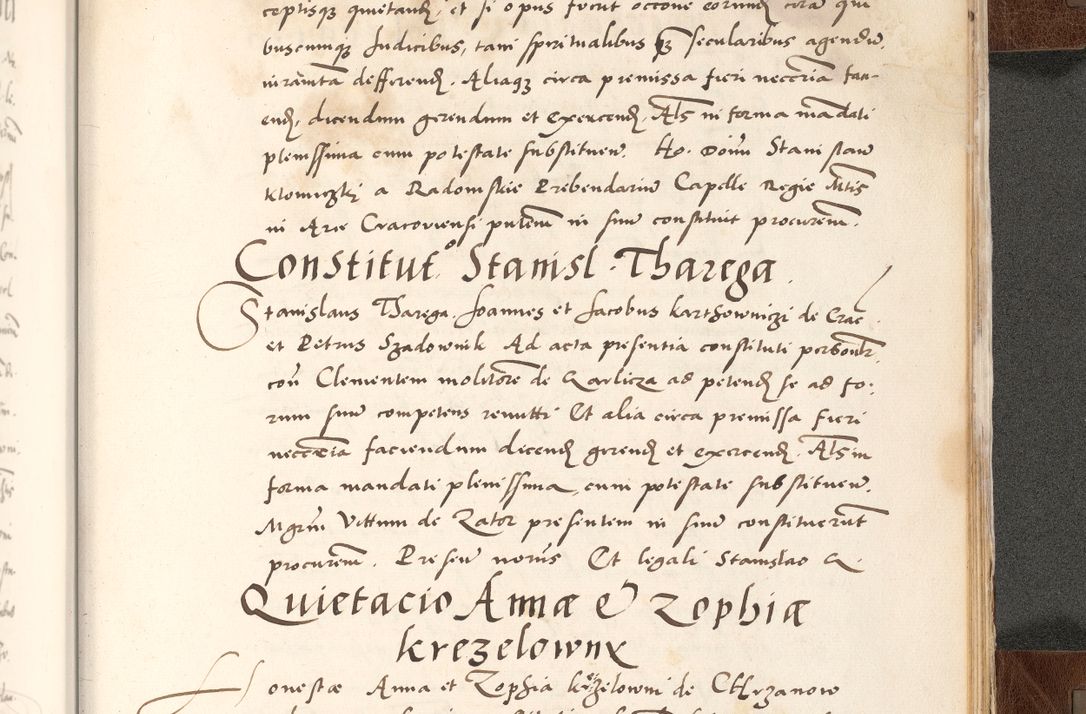 ceptisqz quietand, et si opus fuerit occone eorund cora qui
buscumqz Judicibus, tam spiritualibus qz secularibus agendu,
iuramta defferend. Aliaqz circa premissa fieri necceria faci-
end, dicendum gerendum et exercend. Als in forma madati
plenissima cum potestate substituen. Ho. Doim Stanislau
Klomiczkj a Radomskie Prebendariu Capelle Regie Mtis
in Arce Cracoviensi pntem in suu constituit procurem.
Constitut.o Stanisl. Tharega.
Stanislaus Tharega. Joannes et Jacobus karthowniczi de Crac.
et Petrus Szadownik Ad acta presentia constituti personlr,
con Clementem molitore de Karlicza ad petend se ad fo-
rum suu competens remitti Et alia circa premissa fieri
necceria faciendum dicend gerend et exercend. Als in
forma mandati plenissima, cum potestate substituen.
Mgrm Vittum de Zator presentem in suu constituerut
procurem. Presen notrüs Et legali Stanislao R.
Quietacio Annæ & Zophiæ
krezelownx
Honestæ Anna et Zophia krezelowni de Chrzanow